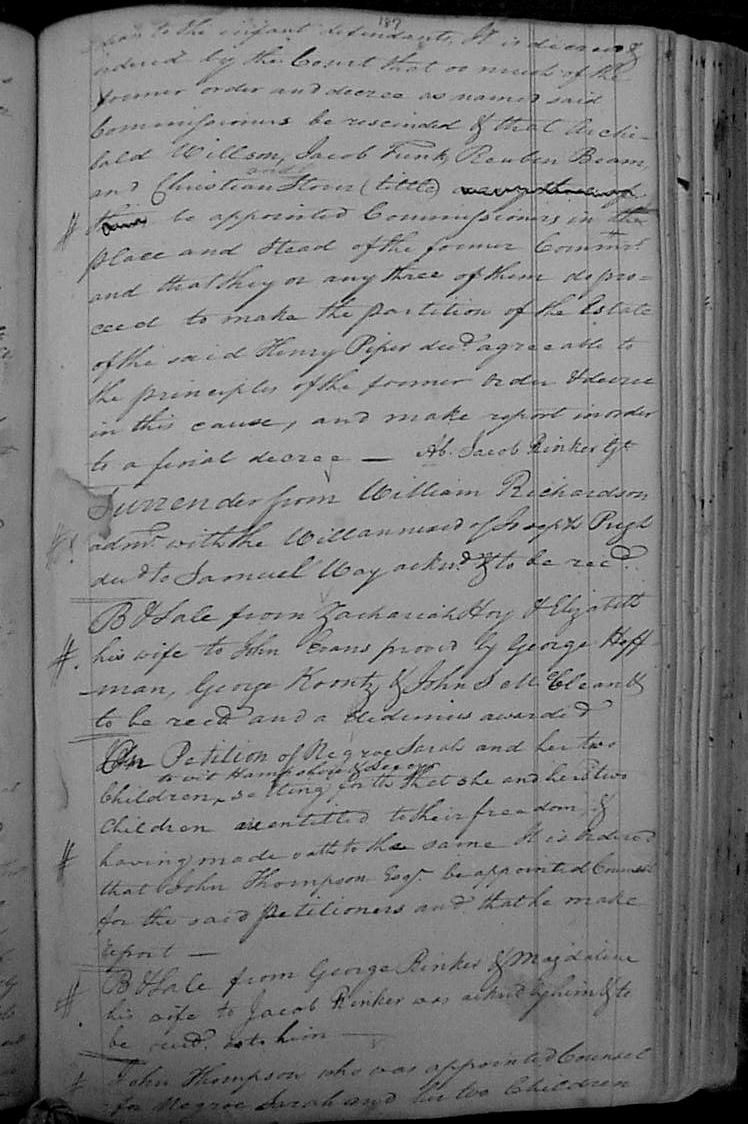 187
to the infant defendants, It is decreed &
ordered by the Court that so much of the
former order and decree as named said
Commissioners be rescinded & that Archi=
bald Willson, Jacob Funk, Reuben Beam,
and
and Christian Stover (little)
# be appointed Commissioners in the
place and stead of the former Commrs
and that they or any three of them do pro=
ceed to make the partition of the Estate
of the said Henry Piper decd. agreeable to
the principles of the former order & decree
in this cause, and make report in order
to a final decree — Ab. Jacob Rinker Gt
Surrender from William Richardson
#. admr. with the Will annexed of Joseph Pugh
decd to Samuel Way acknd. & to be recd.
B & Sale from Zachariah Hoy & Elizabeth
#. his wife to John Evans proved by George Hoff
-man, George Koontz & John S McClean &
to be recd and a dedimus awarded
On Petition of Negroe Sarah and her two
to wit Hampshire &
Children, setting forth that she and her two
Children are entitled to their freedom, &
# having made oath to the same It is ordered
that John Thompson Esqr. be appointed Counsel
for the said petitioners and that he make
report —
B & Sale from George Rinker & Magdalene
#. his wife to Jacob Rinker was acknd by him & to
be recd. as to him —
# John Thompson who was appointed Counsel
for Negroe Sarah and her two Children